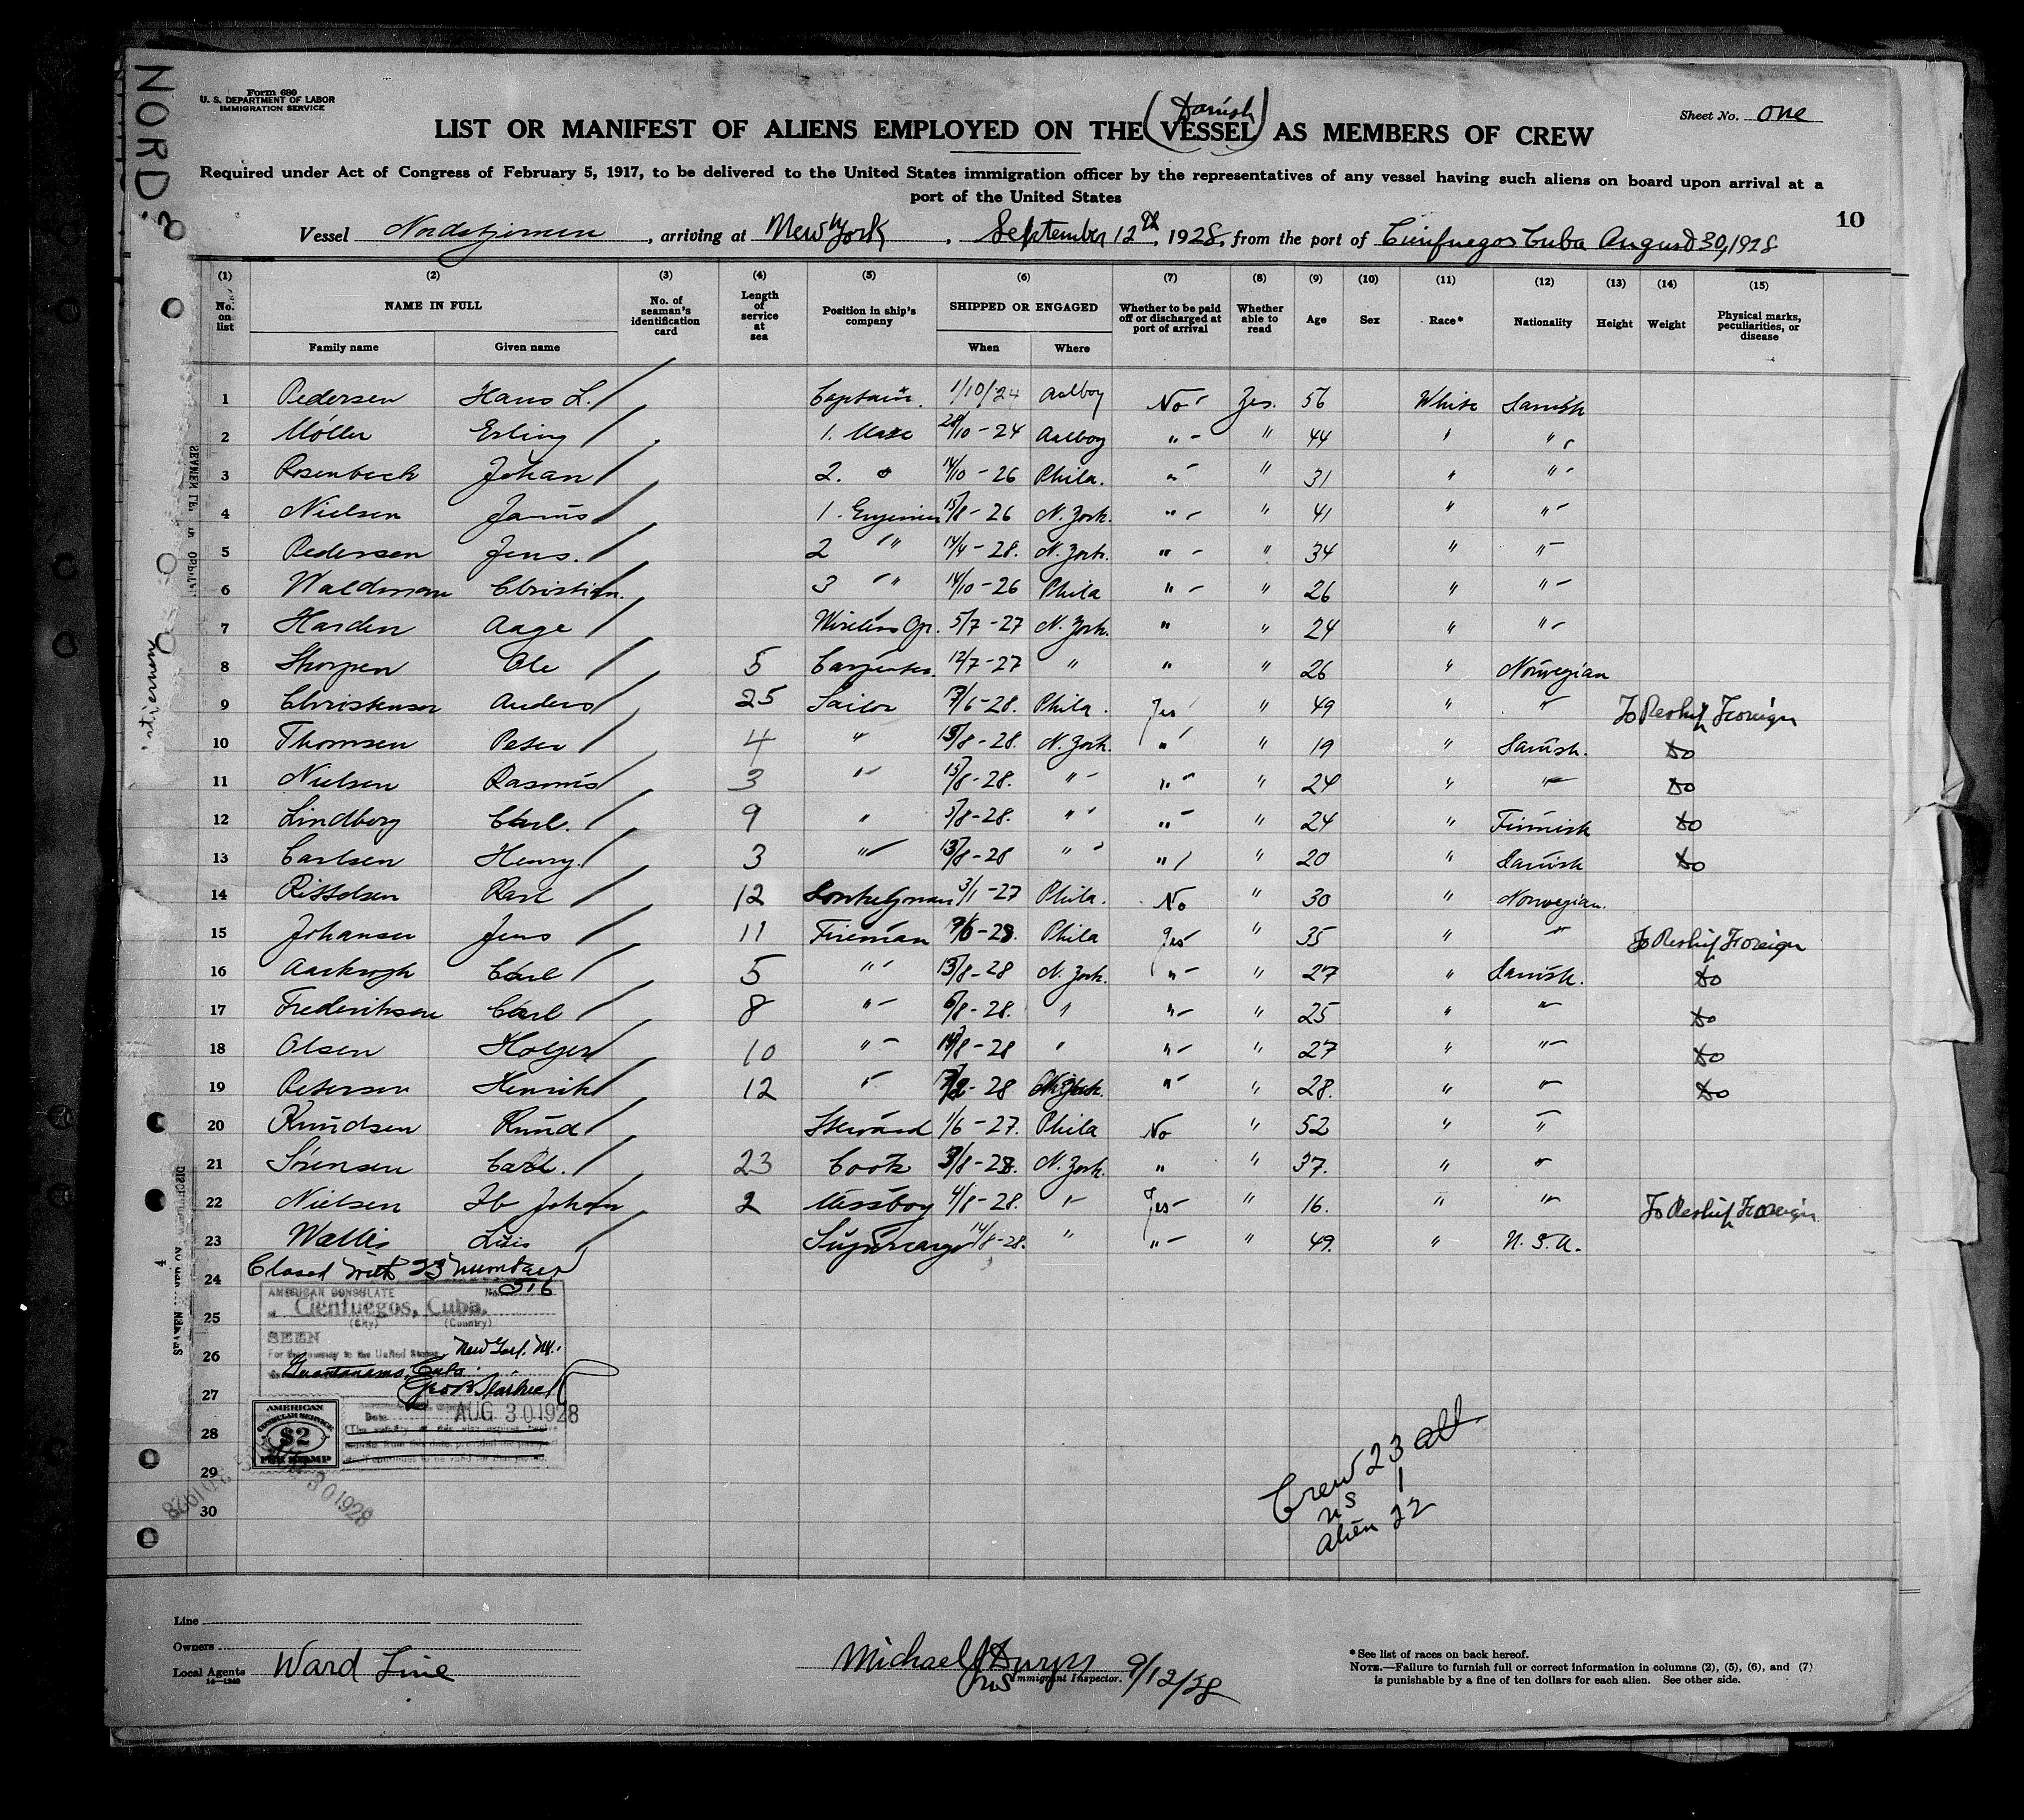 NORD.
Form 680
U. S. DEPARTMENT OF LABOR
IMMIGRATION SERVICE
Sheet No. one
Danish
LIST OR MANIFEST OF ALIENS EMPLOYED ON THE (VESSEL) AS MEMBERS OF CREW
Required under Act of Congress of February 5, 1917, to be delivered to the United States immigration officer by the representatives of any vessel having such aliens on board upon arrival at a
port of the United States
10
Vessel Nordstjernen, arriving at New York, September 12th, 1928, from the port of Cienfuegos Cuba August 30, 1928
(1) (2) (3) (4) (5) (6) (7) (8) (9) (10) (11) (12) (13) (14) (15)
No. on list NAME IN FULL No. of seaman's identification card Length of service at sea Position in ship's company SHIPPED OR ENGAGED Whether to be paid off or discharged at port of arrival Whether able to read Age Sex Race* Nationality Height Weight Physical marks, peculiarities, or disease
Family name Given name When Where
1 Pedersen Hans L. Captain. 1/10/24 Aalborg No Yes. 56 White Danish
2 Möller Erling 1. Mate 28/10-24 Aalborg " " 44 " "
3 Rosenbech Johan 2. " 14/10-26 Phila. " " 31 " "
4 Nielsen Janus 1. Engenier 15/8-26 N. York. " " 41 " "
5 Pedersen Jens. 2 " 14/4-28. N. York. " " 34 " "
6 Waldman Christian. 3 " 14/10-26 Phila " " 26 " "
7 Harden Aage Wireless Op. 5/7-27 N. York. " " 24 " "
8 Ole 5 Carpenter. 12/7-27 " " " 26 " Norwegian
9 Christensen Anders 25 Sailor 7/6-28. Phila. Yes " 49 " " To Reship Foreign
10 Thomsen Peter 4 " 15/8-28. N. York. " " 19 " Danish. do
11 Nielsen Rasmus 3 " 15/8-28. " " " 24 " " do
12 Lindberg Carl. 9 " /8-28. " " " 24 " Finnish do
13 Carlsen Henry. 3 " /8-28 " " " 20 " Danish do
14 Karl 12 Donkeyman 3/1-27 Phila. No " 30 " Norwegian.
15 Johansen Jens 11 Fireman /6-28. Phila Yes " 35 " " To Reship Foreign
16 Aaskrogh Carl 5 " /8-28 N. York. " " 27 " Danish. do
17 Frederiksen Carl 8 " /8-28. " " " 25 " " do
18 Olsen Holger 10 " /8-28 " " " 27 " " do
19 Petersen Henrik 12 " -28 N. York. " " 28. " " do
20 Knudsen Knud Steward 1/6-27. Phila No " 52 " "
21 Sörensen Carl. 23 Cook /8-28. N. York. " " 37. " "
22 Nielsen Ib Johan 2 Messboy 4/8-28. " Yes " 16. " " To Reship Foreign
23 Wallis Luis Supercargo 14/8-28. " " " 49. " U. S. A.
Closed with 23 number
24
AMERICAN CONSULATE No. 516
at Cienfuegos, Cuba.
25
(City) (Country)
SEEN
26
For the journey to the United States New York. NY.
Guantanamo, Cuba
27
Date AUG 30 1928
AMERICAN
CONSULAR SERVICE
$2
FEE STAMP
28
29
30
AUG 30 1928
Crew 23 all
US 1
Alien 22
Line
Owners
Local Agents Ward Line
14—1240
Michael
Immigrant Inspector. 9/12/28
* See list of races on back hereof.
NOTE.—Failure to furnish full or correct information in columns (2), (5), (6), and (7)
is punishable by a fine of ten dollars for each alien. See other side.